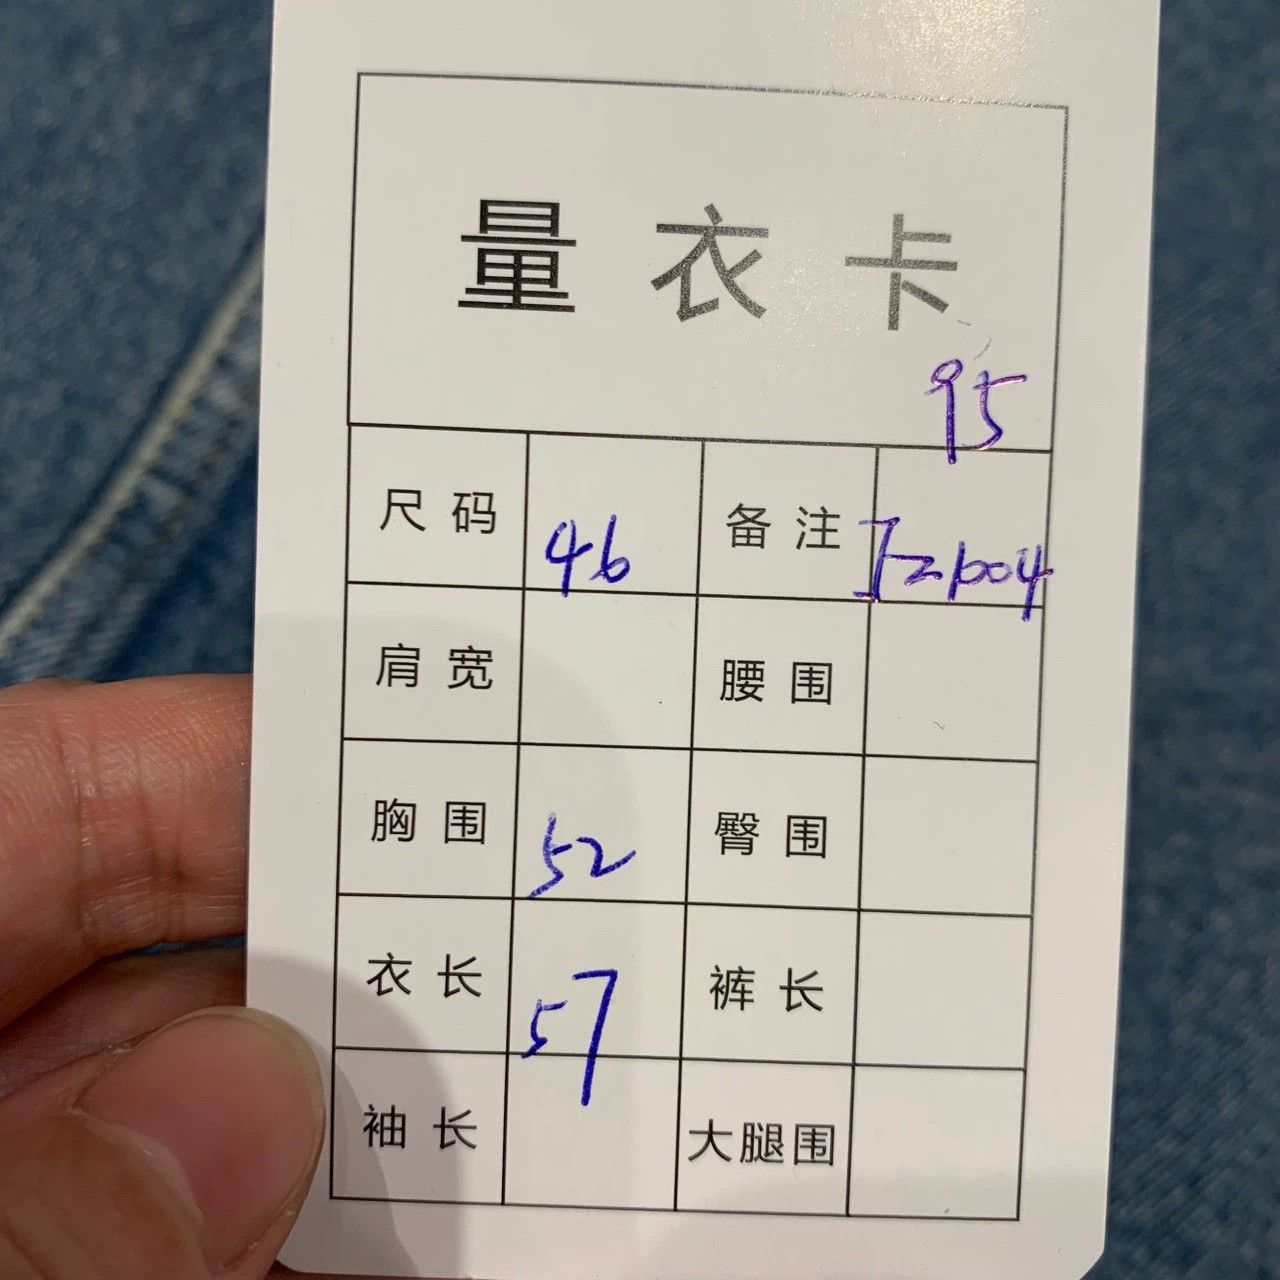 量衣卡
95
尺码 46 备注 F21004
肩宽 腰围
胸围 52 臀围
衣长 57 裤长
袖长 大腿围